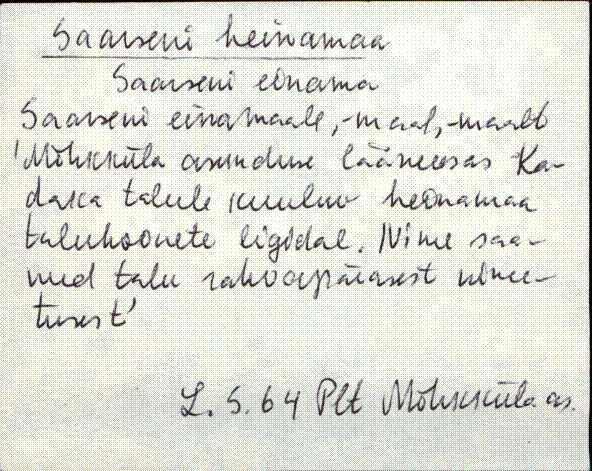 Saarseni heinamaa
Saarseni einama
Saarseni einamaale, -maal, -maalt
'Mõhkküla asunduse lääneosas Ka-
daka talule kuuluv heinamaa
taluhoonete ligidal. Nime saa-
nud talu rahvapärasest nime-
tusest'
L. S. 64 Plt Mõhkküla as.